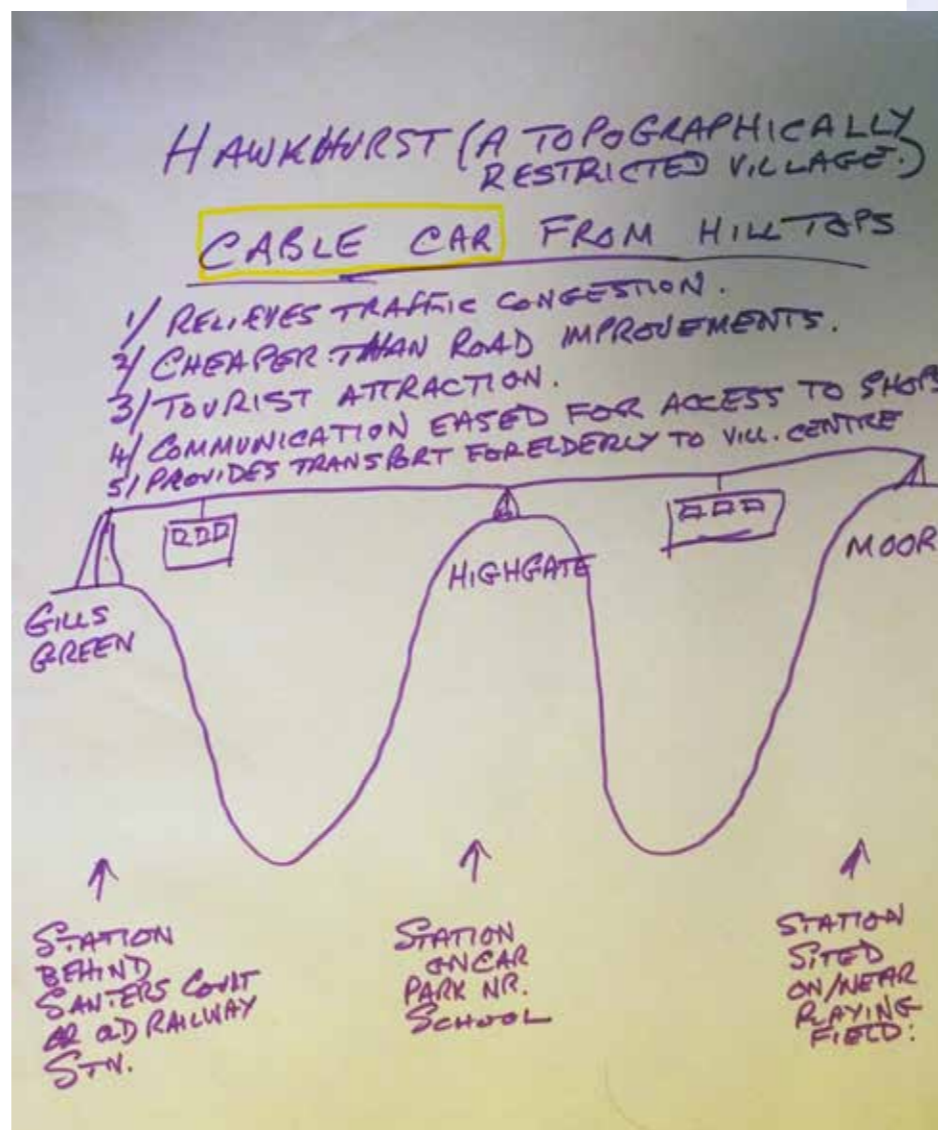 HAWKHURST (A TOPOGRAPHICALLY
RESTRICTED VILLAGE.)
CABLE CAR FROM HILL TOPS
1/ RELIEVES TRAFFIC CONGESTION.
2/ CHEAPER THAN ROAD IMPROVEMENTS.
3/ TOURIST ATTRACTION.
4/ COMMUNICATION EASED FOR ACCESS TO SHOPS
5/ PROVIDES TRANSPORT FOR ELDERLY TO VILL. CENTRE
GILLS
GREEN
HIGHGATE
MOOR
STATION
BEHIND
SANTERS COURT
OR OLD RAILWAY
STN.
STATION
ON CAR
PARK NR.
SCHOOL
STATION
SITED
ON/NEAR
PLAYING
FIELD.